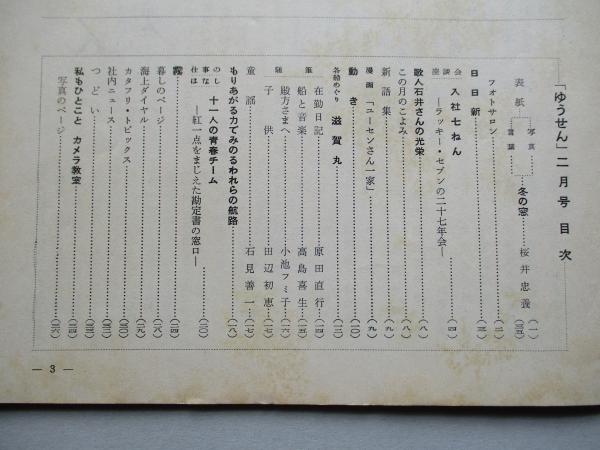 「ゆうせん」二月号 目次
表紙 写真 言葉 冬の窓 桜井忠義 (一) (三五)
フォトサロン (二)
日日新 (三)
座談会 入社七ねん (四)
―ラッキー・セブンの二十七年会―
歌人石井さんの光栄 (八)
この月のこよみ (八)
新語集 (九)
漫画 「ユーセンさん一家」 (九)
動き (一〇)
各船めぐり 滋賀丸 (一二)
随筆
在勤日記 原田直行 (一四)
船と音楽 高島喜生 (一五)
殿方さまへ 小池フミ子 (一六)
子供 田辺初恵 (一七)
童謡 石見善一
もりあがる力でみのるわれらの航路 (一八)
のし事な仕は 十一人の青春チーム (二〇)
―紅一点をまじえた勘定書の窓口―
霧 (二四)
暮しのページ
海上ダイヤル
カタフリ・トピックス
社内ニュース
つどい
私もひとこと カメラ教室
写真のページ
― 3 ―